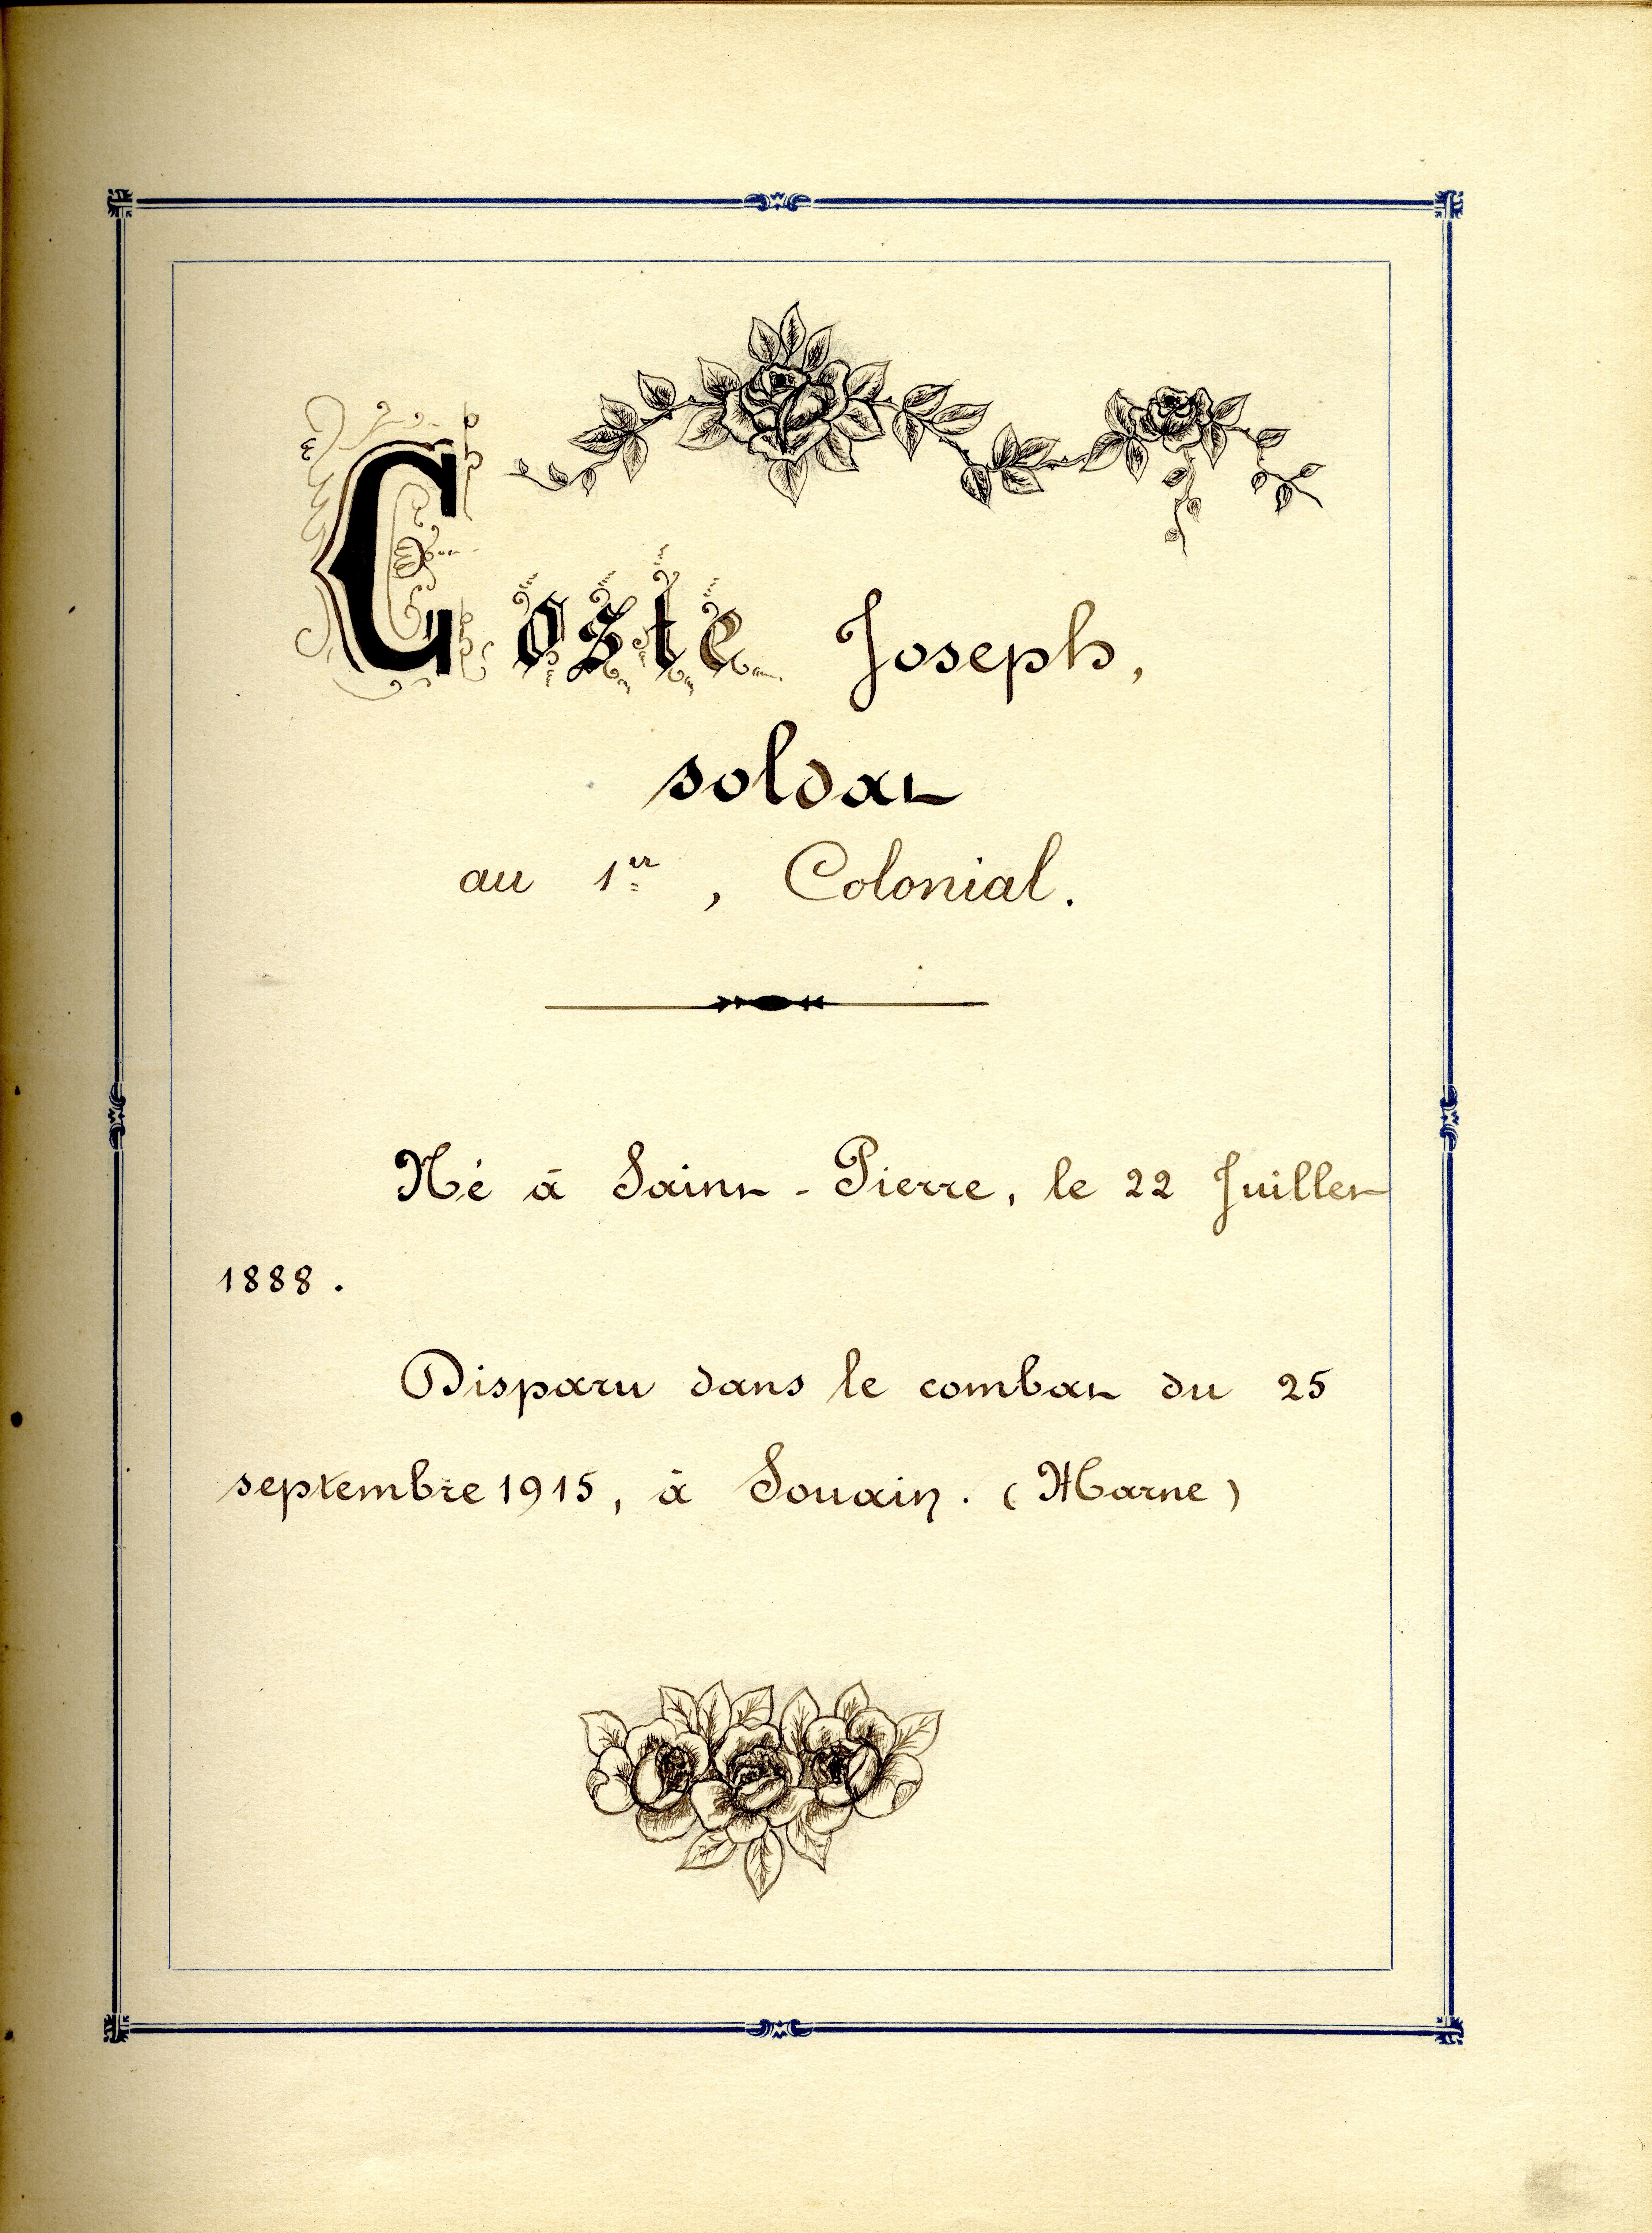 Coste Joseph,
soldat
au 1er, Colonial.
Né à Saint-Pierre, le 22 Juillet
1888.
Disparu dans le combat du 25
septembre 1915, à Souain. (Marne)